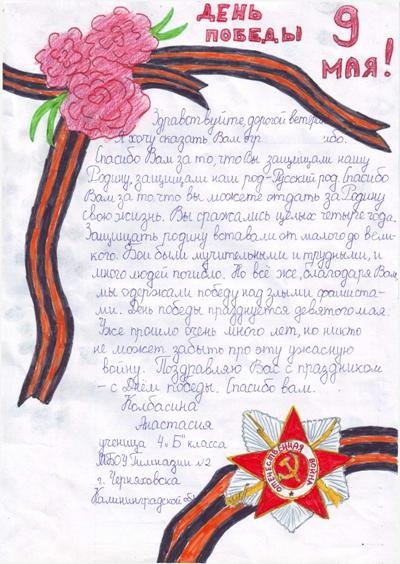 ДЕНЬ
ПОБЕДЫ
9
МАЯ!
Здравствуйте, дорогой
Я хочу сказать Вам
Спасибо Вам за то, что Вы защищали нашу
Родину, защищали наш род-Русский род. Спасибо
Вам за то, что вы можете отдать за Родину
свою жизнь. Вы сражались целых четыре года.
Защищать родину вставали от малого до вели-
кого. Бои были мучительными и трудными, и
много людей погибло. Но всё же, благодаря Вам,
мы одержали победу над злыми фашиста-
ми. День победы празднуется девятого мая.
Уже прошло очень много лет, но никто
не может забыть про эту ужасную
войну. Поздравляю Вас с праздником
– с Днём победы. Спасибо вам.
Колбасина
Анастасия
ученица 4 „Б" класса
МБОУ Гимназии №2
г. Черняховска
Калининградской
ОТЕЧЕСТВЕННАЯ
ВОЙНА